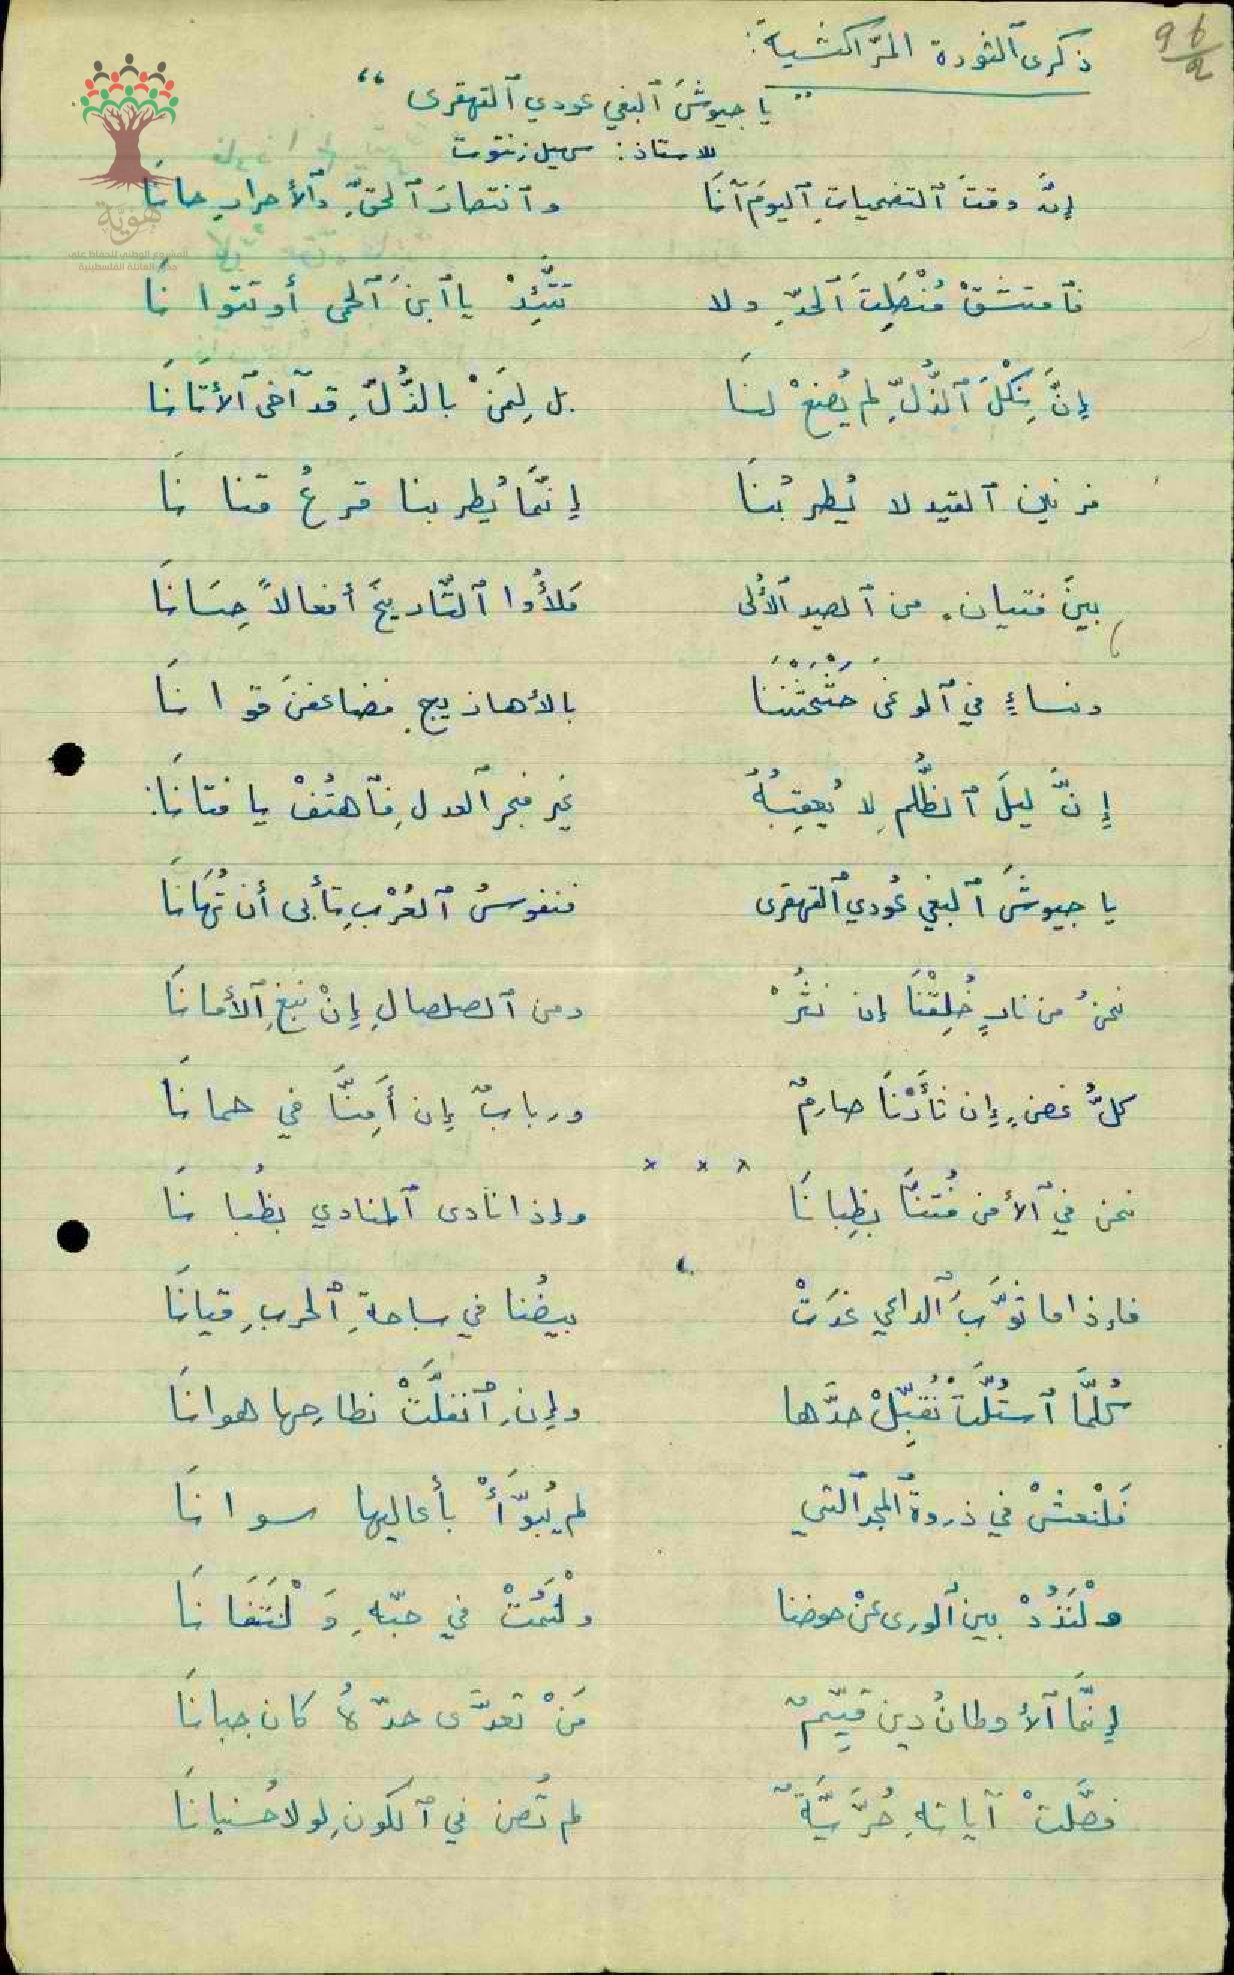 ذكرى ٱلثورة المرّاكشية:
٩٦/٢
" يا جيوشَ ٱلبغي عودي ٱلقهقرى "
للاستاذ: سهيل زنتوت
هُويّة
المشروع الوطني للحفاظ على
جذور العائلة الفلسطينية
إنَّ وقتَ ٱلتضحياتِ ٱليومَ آنَا وٱنتصارَ ٱلحقِّ وٱلأحرارِ حانَا
فٱمتشقْ مُنْصَلِتَ ٱلحدِّ ولا تتَّئِدْ يا ٱبنَ ٱلحمى أو تتوانَا
إنَّ نِكْلَ ٱلذُّلِّ لم يُصنعْ لنَا بل لِمَنْ بالذُّلِّ قد آخى ٱلأتَانَا
فرنين ٱلقيد لا يُطربُنَا إنّمَا يُطربنا قرعُ قنانَا
بينَ فتيانٍ من ٱلصيد ٱلأُلى مَلأُوا ٱلتَّاريخَ أفعالاً حِسَانَا
ونساءٍ في ٱلوغى حَثْحَثْنَنَا بالأهازيجِ فضاعفنَ قوانَا
إِنَّ ليلَ ٱلظُّلمِ لا يُعقِبُهُ غير فجر ٱلعدلِ فٱهتُفْ يا فتانَا:
يا جيوشَ ٱلبغي عُودي ٱلقهقرى فنفوسُ ٱلعُرْبِ تأبى أن تُهَانَا
نحنُ من نارٍ خُلِقْنَا إن نثُرْ ومن ٱلصلصالِ إِنْ نبغِ ٱلأمانَا
كلُّ غصنٍ إن ثأَرْنَا صارمٌ وربابٌ إن أَمِنَّا في حمانَا
× × ×
نحن في ٱلأمن فُتنَّا بظِبانَا وإذا نادى ٱلمنادي بظُبانَا
فإذا ما ثوَّبَ ٱلداعي غدَتْ بيضُنا في ساحةِ ٱلحربِ قيانَا
كُلَّمَا ٱستُلَّتْ نُقبِّلْ حدَّها وإنِ ٱنفلَّتْ نطارحها هوانَا
فَلْنعشْ في ذروة ٱلمجد ٱلتي لم يُبوَّأْ بأعاليها سوانَا
ولْنَذُدْ بين ٱلورى عنْ حوضنا ولْنَمُتْ في حبّهِ وَلْنَتَفَانَا
إنّمَا ٱلأوطانُ دين قيّمٌ مَنْ تعدَّى حدّهُ كان جبانَا
فصَّلتْ آياتهِ حُرّيَّةٌ لم تُصن في ٱلكونِ لولا حُسنيانَا